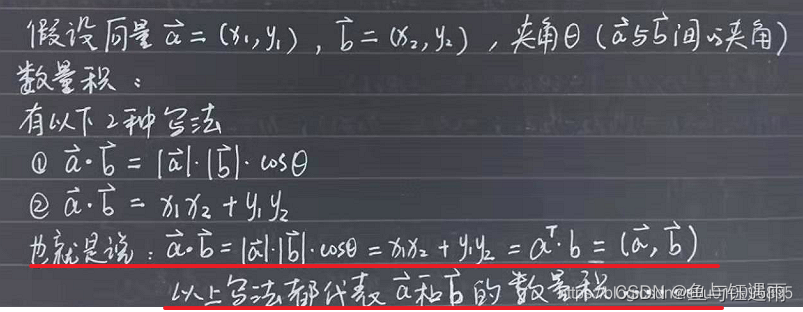 假设向量 a⃗ = (x₁, y₁) , b⃗ = (x₂, y₂) , 夹角θ (a⃗与b⃗间的夹角)
数量积：
有以下2种写法
① a⃗·b⃗ = |a⃗|·|b⃗|·cosθ
② a⃗·b⃗ = x₁x₂ + y₁y₂
也就是说：a⃗·b⃗ = |a⃗|·|b⃗|·cosθ = x₁x₂ + y₁y₂ = aᵀ·b = (a⃗, b⃗)
以上写法都代表 a⃗和b⃗ 的数量积
CSDN @鱼与钰遇雨